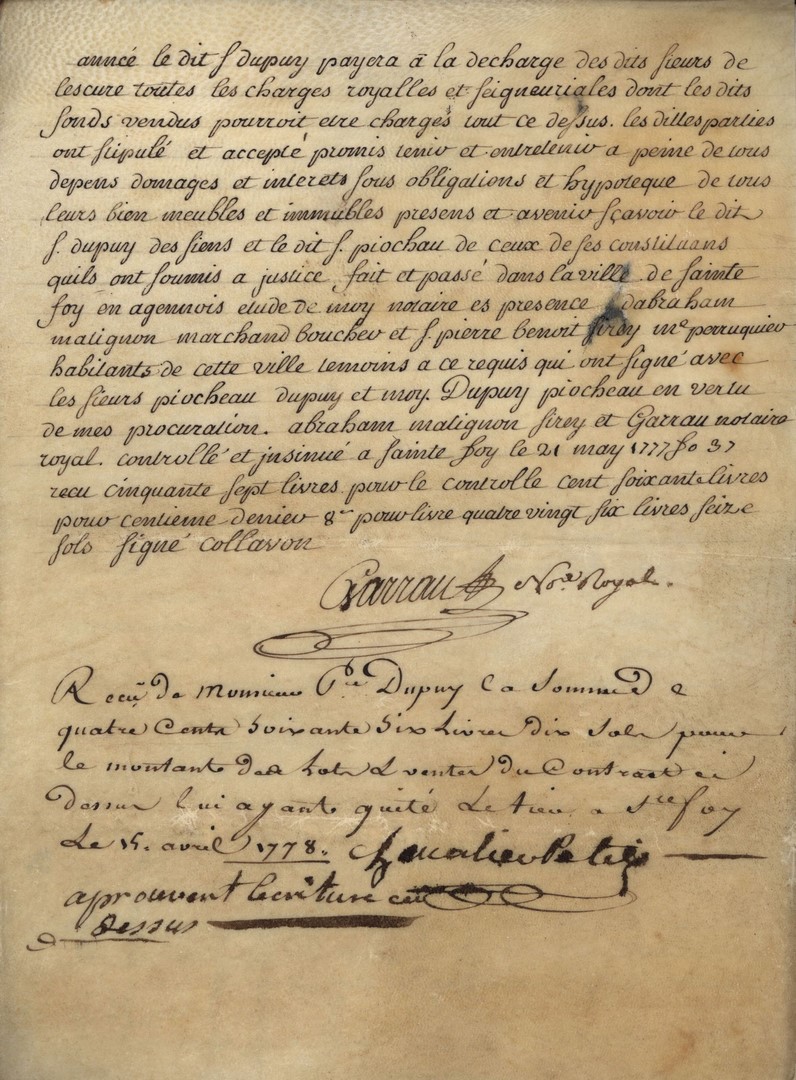 année le dit s. dupuy payera à la decharge des dits sieurs de
lescure toutes les charges royalles et seigneuriales dont les dits
fonds vendus pourroit etre chargés tout ce dessus. les dittes parties
ont stipulé et accepté promis tenir et entretenir a peine de tous
depens domages et interets sous obligations et hypoteque de tous
leurs bien meubles et immubles presens et avenir sçavoir le dit
s. dupuy des siens et le dit s. piochau de ceux de ses constituans
quils ont soumis a justice fait et passé dans la ville de sainte
foy en agennois etude de moy notaire es presence dabraham
matignon marchand boucher et s. pierre benoit sirey me perruquier
habitants de cette ville temoins a ce requis qui ont signé avec
les sieurs piocheau dupuy et moy. Dupuy piocheau en vertu
de mes procuration. abraham matignon sirey et Garrau notaire
royal. controllé et jnsinué a sainte foy le 21 may 1777 fo 37
recu cinquante sept livres pour le controlle cent soixante livres
pour centieme denier 8 pour livre quatre vingt six livres seize
sols signé collavon
Garrau Nre Royal.
Recu de Monsieur Pre Dupuy la Somme de
quatre Cents Soixante Six Livres dix Sols pour
le montant des Lots & ventes du Contract ci
dessus lui ayant quité Le tien a Ste foy
Le 15. avril 1778.
aprouvent lecriture ci
dessus